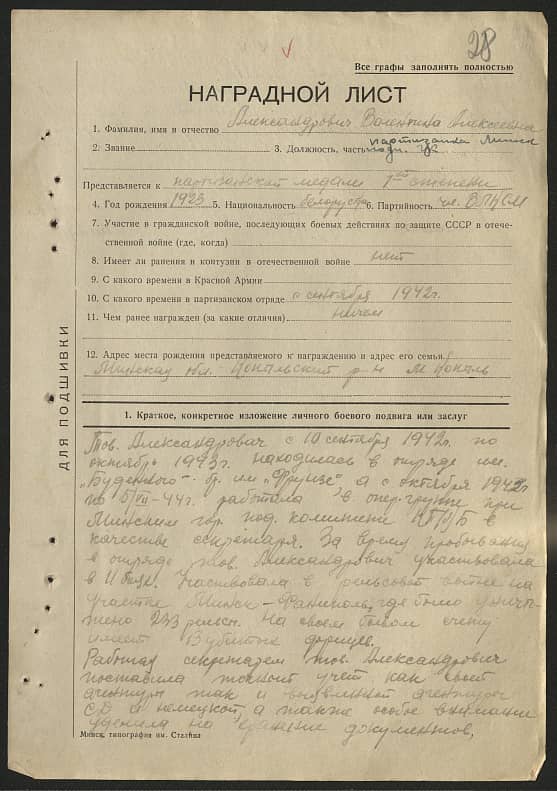 28
Все графы заполнять полностью
НАГРАДНОЙ ЛИСТ
1. Фамилия, имя и отчество Александрович Валентина Алексеевна
2. Звание 3. Должность, часть партизанка Минск
Представляется к партизанской медали 1ой степени
4. Год рождения 1923 5. Национальность белоруска 6. Партийность чл. ВЛКСМ
7. Участие в гражданской войне, последующих боевых действиях по защите СССР в отече-
ственной войне (где, когда)
8. Имеет ли ранения и контузии в отечественной войне нет
9. С какого времени в Красной Армии
10. С какого времени в партизанском отряде с сентября 1942г.
11. Чем ранее награжден (за какие отличия) ничем
12. Адрес места рождения представляемого к награждению и адрес его семьи
Минская обл. Копыльский р-н М Копыль
ДЛЯ ПОДШИВКИ
1. Краткое, конкретное изложение личного боевого подвига или заслуг
Тов. Александрович с 10 сентября 1942г. по
октябрь 1943г. находилась в отряде им.
"Буденного" бр. им "Фрунзе" а с октября
по 5/VII-44г. работала в опер. группе при
Минским гор. под. комитете КП(б)Б в
качестве секретаря. За время пребывания
в отряде тов. Александрович участвовала
в 11 боях. Участвовала в рельсовой войне на
участке Минск-Фаниполь, где было уничто-
жено 233 рельсы. На своем боевом счету
имеет 13 убитых фрицев.
Работая секретарем тов. Александрович
поставила учет как своей
агентуры так и выявленной агентуры
СД и немецкой, а также особое внимание
уделила на хранение документов,
Минск, типография им. Сталина